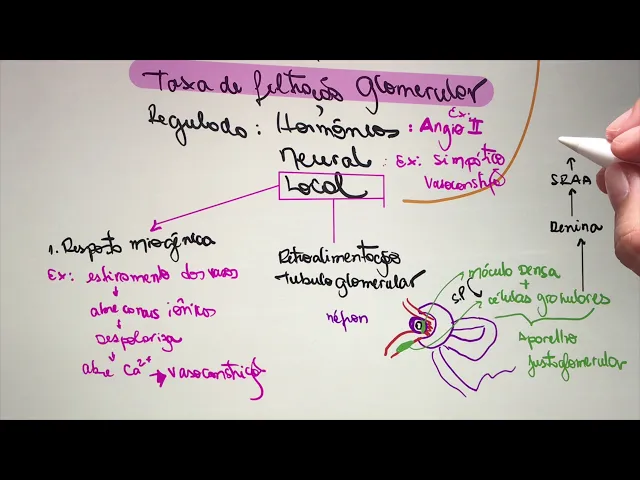 Taxa de filtração Glomerular
Regulado: Hormônios: Ex: Angio II
Neural: Ex: Simpático
vasoconstrição
Local
1. Resposta miogênica
Ex: estiramento dos vasos
↓
abre canais iônicos
↓
Despolariza
↓
abre Ca²⁺ → vasoconstrição
Retroalimentação
tubuloglomerular
néfron
SP
mácula Densa
+
células granulares
Aparelho
justaglomerular
SRAA
Renina